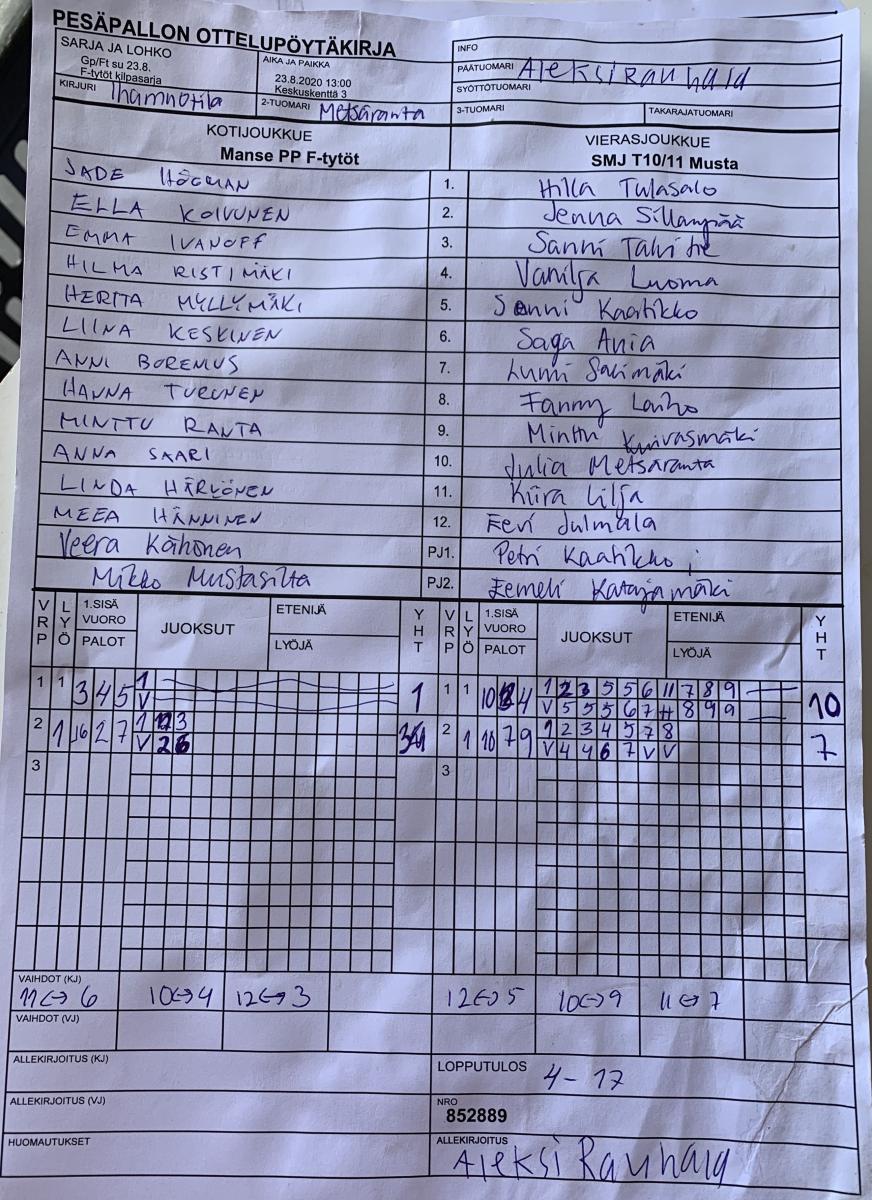 PESÄPALLON OTTELUPÖYTÄKIRJA
SARJA JA LOHKO
Gp/Ft su 23.8.
F-tytöt kilpasarja
AIKA JA PAIKKA
23.8.2020 13:00
Keskuskenttä 3
INFO
PÄÄTUOMARI Aleksi Rauhala
SYÖTTÖTUOMARI
KIRJURI
2-TUOMARI Metsäranta
3-TUOMARI
TAKARAJATUOMARI
KOTIJOUKKUE
Manse PP F-tytöt
VIERASJOUKKUE
SMJ T10/11 Musta
JADE HÖGMAN 1. Hilla Tulasalo
ELLA KOIVUNEN 2. Jenna Sillanpää
EMMA IVANOFF 3. Sanni Talvitie
HILMA RISTIMÄKI 4. Vanilja Luoma
HERTTA MYLLYMÄKI 5. Sonni Kaatikko
LIINA KESKINEN 6. Saga Ania
ANNI BORENIUS 7. Lumi Salimäki
HANNA TURUNEN 8. Fanny Laiho
MINTTU RANTA 9. Minttu Kuivasmäki
ANNA SAARI 10. Julia Metsäranta
LINDA HÄRKÖNEN 11. Kiira Lilja
MEEA HÄNNINEN 12. Eevi Julmala
Veera Kähönen PJ1. Petri Kaatikko
Mikko Mustasilta PJ2. Eemeli Katajamäki
VRP LYÖ 1.SISÄ VUORO PALOT JUOKSUT ETENIJÄ LYÖJÄ YHT VRP LYÖ 1.SISÄ VUORO PALOT JUOKSUT ETENIJÄ LYÖJÄ YHT
1 1 3 4 5 1 1 1 1 10 4 1 2 3 5 5 6 11 7 8 9 10
V V 5 5 5 6 7 11 8 9 9
2 1 6 2 7 1 3 2 1 10 7 9 1 2 3 4 5 7 8 7
V 2 6 V 4 4 6 7 V V
3 3
VAIHDOT (KJ)
11↔6 10↔4 12↔3 12↔5 10↔9 11↔7
VAIHDOT (VJ)
ALLEKIRJOITUS (KJ)
LOPPUTULOS 4-17
ALLEKIRJOITUS (VJ)
NRO
852889
HUOMAUTUKSET
ALLEKIRJOITUS
Aleksi Rauhala